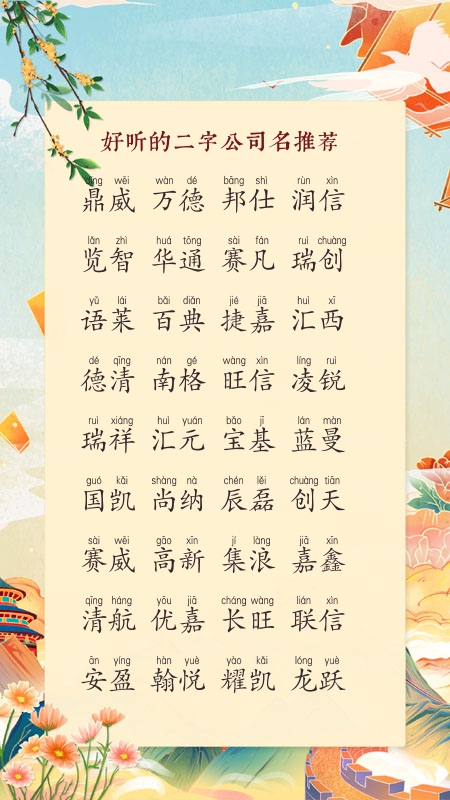 好听的二字公司名推荐
dǐng wēi wàn dé bāng shì rùn xìn
鼎威 万德 邦仕 润信
lǎn zhì huá tōng sài fán ruì chuàng
览智 华通 赛凡 瑞创
yǔ lái bǎi diǎn jié jiā huì xī
语莱 百典 捷嘉 汇西
dé qīng nán gé wàng xìn líng ruì
德清 南格 旺信 凌锐
ruì xiáng huì yuán bǎo jī lán màn
瑞祥 汇元 宝基 蓝曼
guó kǎi shàng nà chén lěi chuàng tiān
国凯 尚纳 辰磊 创天
sài wēi gāo xīn jí làng jiā xīn
赛威 高新 集浪 嘉鑫
qīng háng yōu jiā cháng wàng lián xìn
清航 优嘉 长旺 联信
ān yíng hàn yuè yào kǎi lóng yuè
安盈 翰悦 耀凯 龙跃